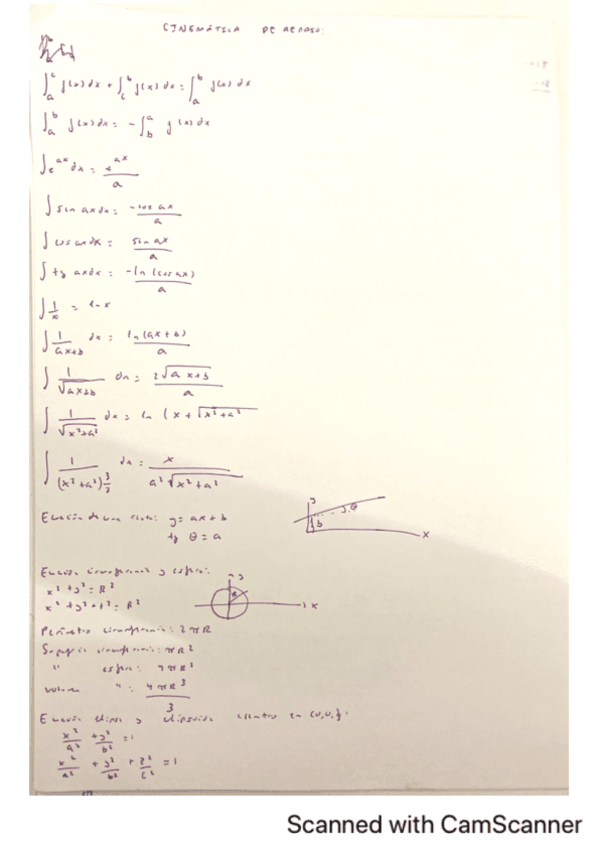 CINEMÁTICA DE REPASO:
∫_a^c f(x)dx + ∫_c^b f(x)dx = ∫_a^b f(x)dx
∫_a^b f(x)dx = -∫_b^a f(x)dx
∫e^ax dx = e^ax/a
∫sin axdx = -cos ax/a
∫cos axdx = sin ax/a
∫tg axdx = -ln(cos ax)/a
∫1/x = ln x
∫1/(ax+b) dx = ln(ax+b)/a
∫1/√(ax+b) dx = 2√(ax+b)/a
∫1/√(x²+a²) dx = ln(x+√(x²+a²)
∫1/(x²+a²)^3/2 dx = x/(a²√(x²+a²))
Ecuación de una recta: y = ax+b
tg θ = a
y
θ
b
x
Ecuación circunferencia y esfera:
x²+y²=R²
x²+y²+z²=R²
y
R
x
Perímetro circunferencia: 2πR
Superficie circunferencia: πR²
" esfera: 4πR²
Volumen ": 4πR³/3
Ecuación elipse y elipsoide centro en (0,0):
x²/a² + y²/b² = 1
x²/a² + y²/b² + z²/c² = 1
Scanned with CamScanner